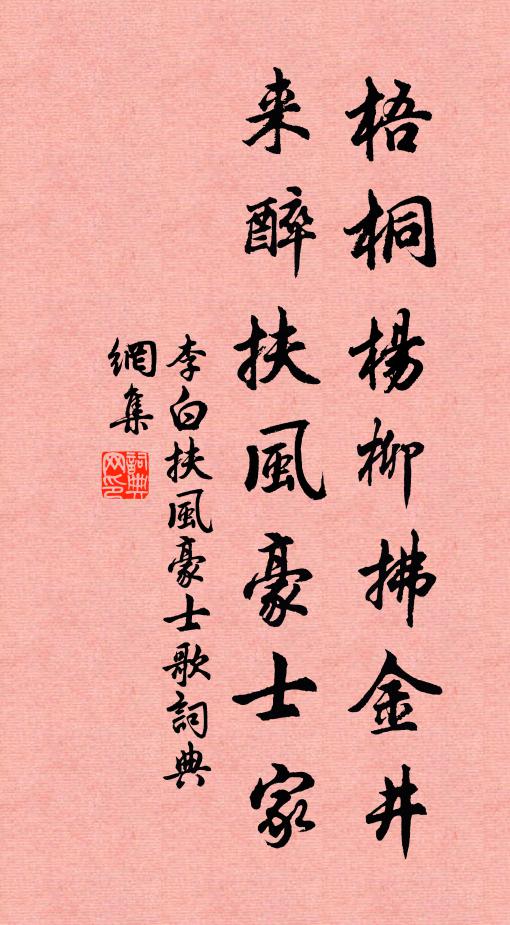 梧桐楊柳拂金井
来醉扶風豪士家
李白扶風豪士歌詞典
網集
詞典网印